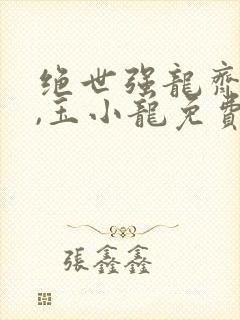 绝世强龍齊
,王小龍免費
張鑫鑫